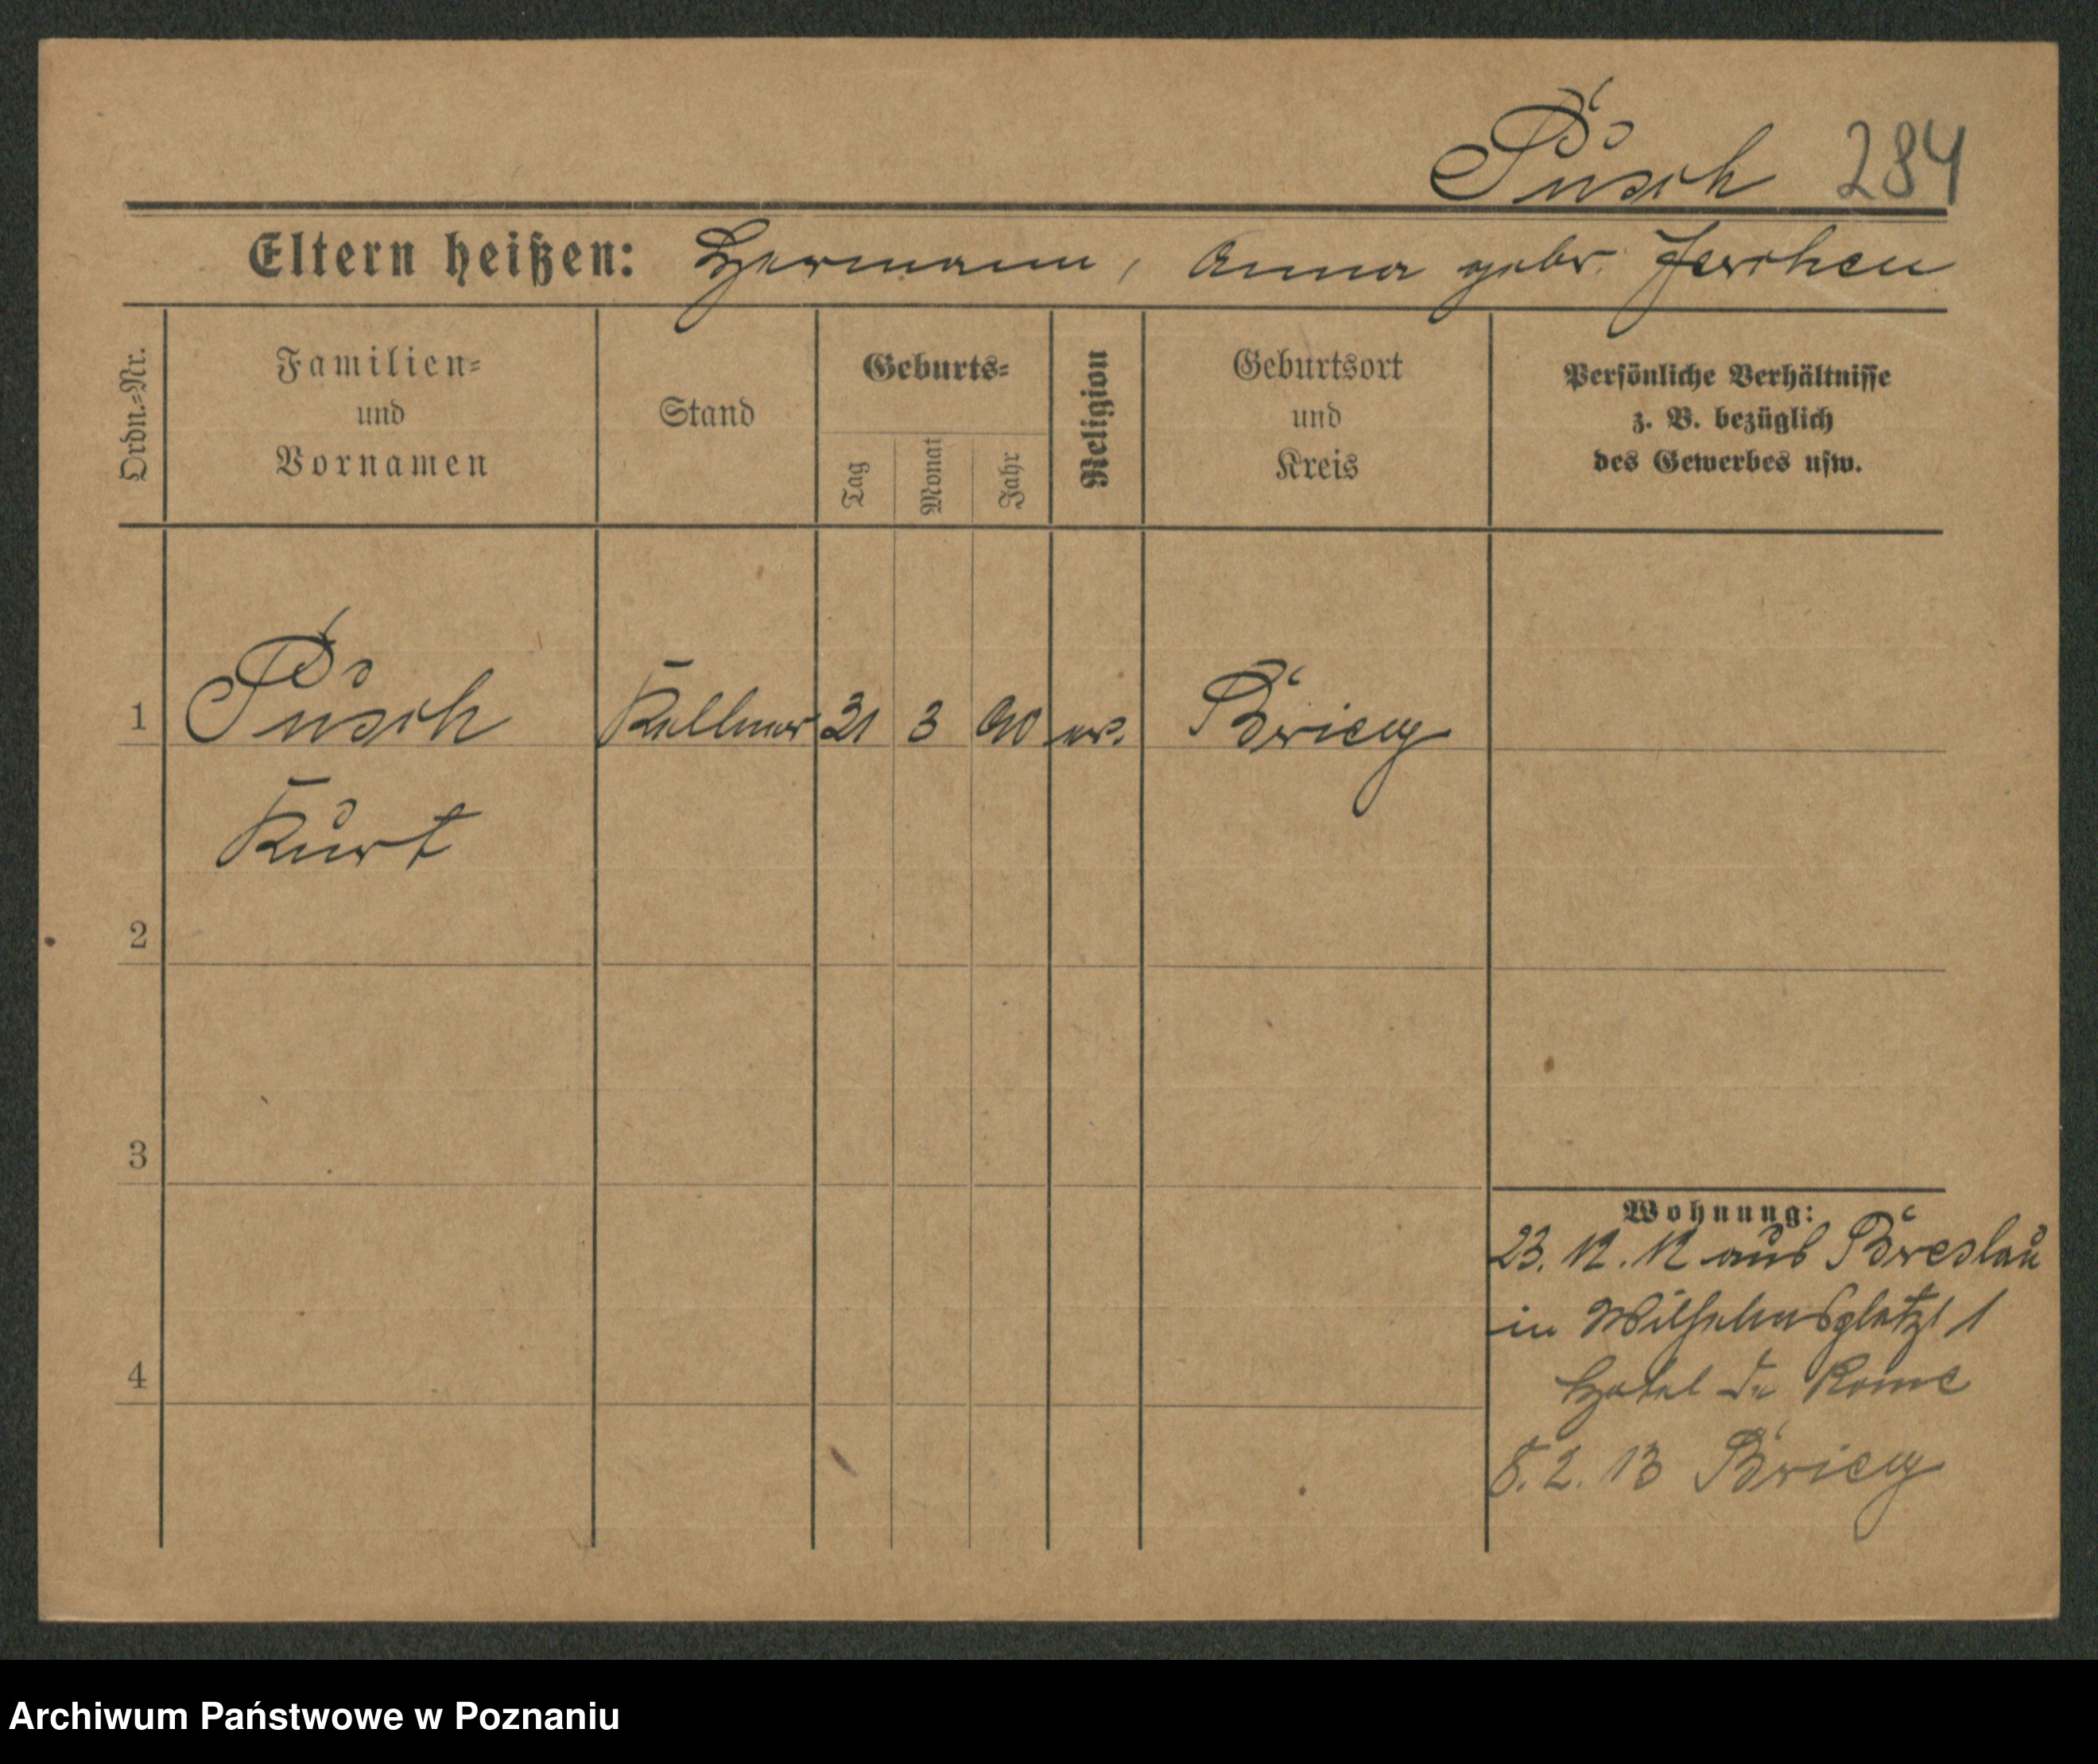 Pusch 284
Eltern heißen: Hermann, Anna gebr. Jerchen
Ordn.=Nr.
Familien=
und
Vornamen
Stand
Geburts=
Tag
Monat
Jahr
Religion
Geburtsort
und
Kreis
Persönliche Verhältnisse
z. B. bezüglich
des Gewerbes usw.
1 Pusch Kellner 21 3 90 ev. Brieg
Kurt
2
3
4
Wohnung:
23. 12. 12 aus Breslau
in Wilhelmsplatz 1
Hotel de Rome
8. 2. 13 Brieg
Archiwum Państwowe w Poznaniu